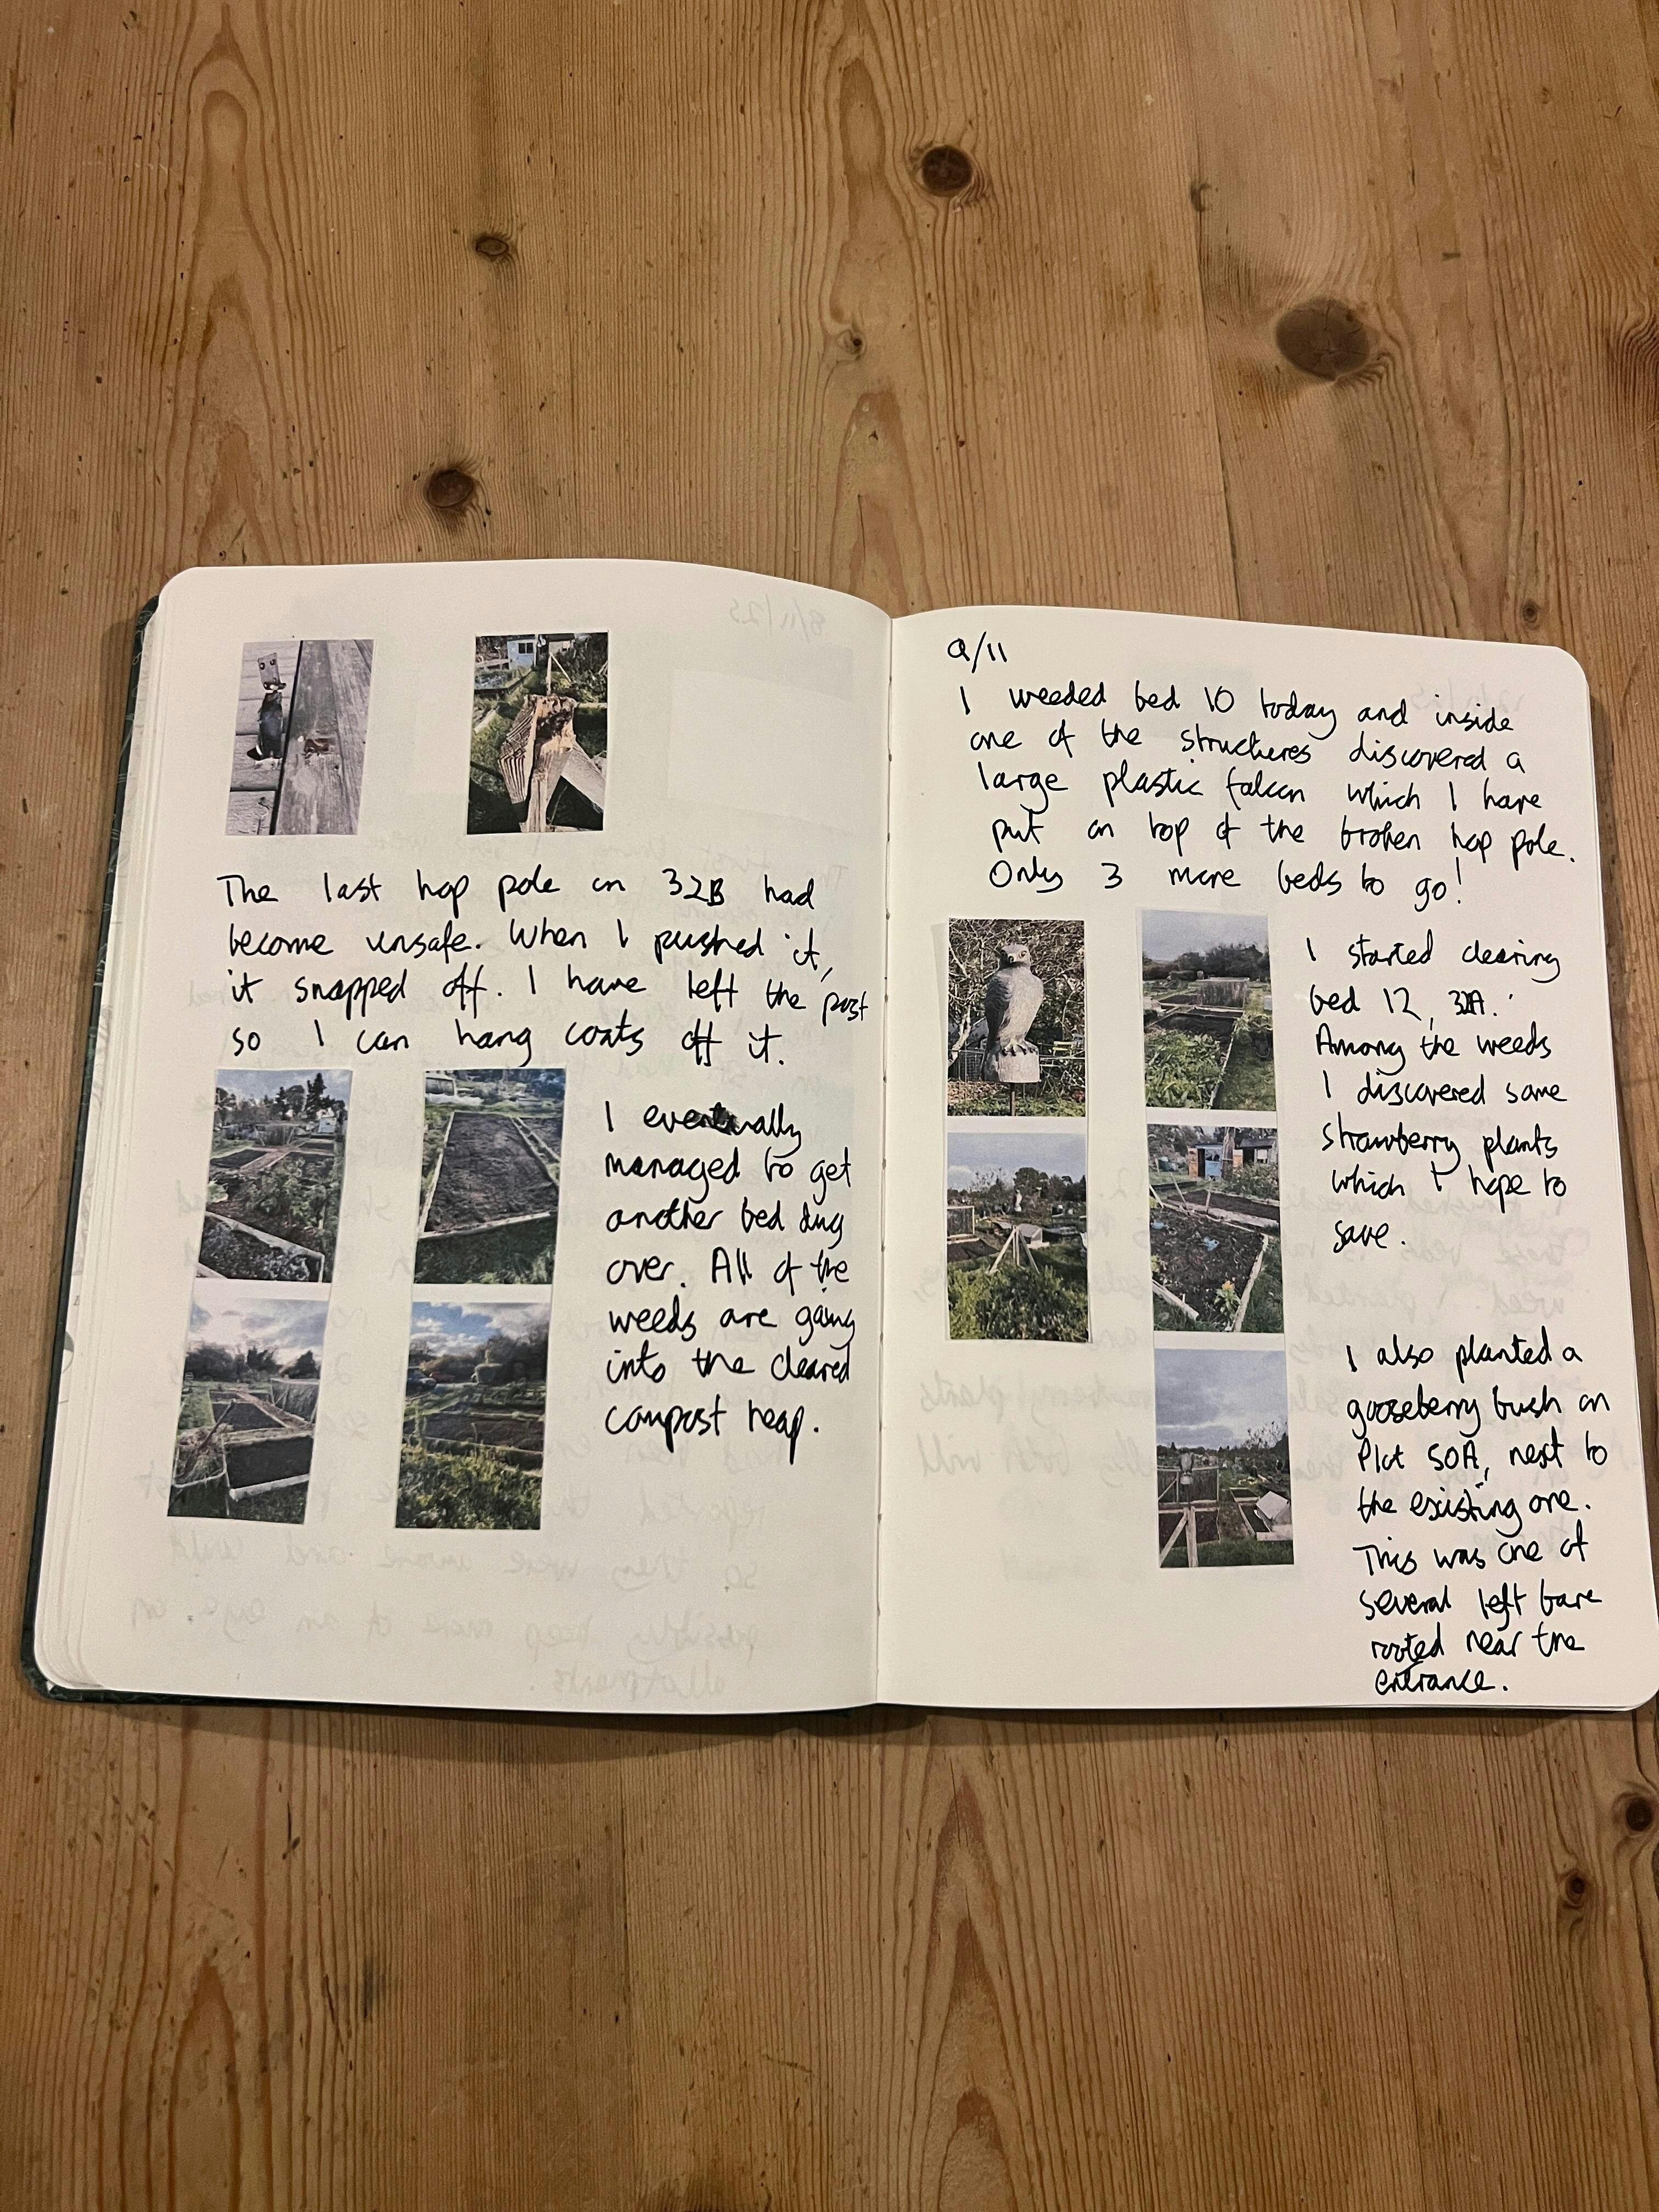 The last hop pole on 32B had
become unsafe. When I pushed it,
it snapped off. I have left the post
so I can hang coats off it.
I eventually
managed to get
another bed dug
over. All of the
weeds are going
into the cleared
compost heap.
9/11
I weeded bed 10 today and inside
one of the structures discovered a
large plastic falcon which I have
put on top of the broken hop pole.
Only 3 more beds to go!
I started clearing
bed 12, 32A.
Among the weeds
I discovered some
strawberry plants
which I hope to
save.
I also planted a
gooseberry bush on
Plot 50A, next to
the existing one.
This was one of
several left bare
rooted near the
entrance.